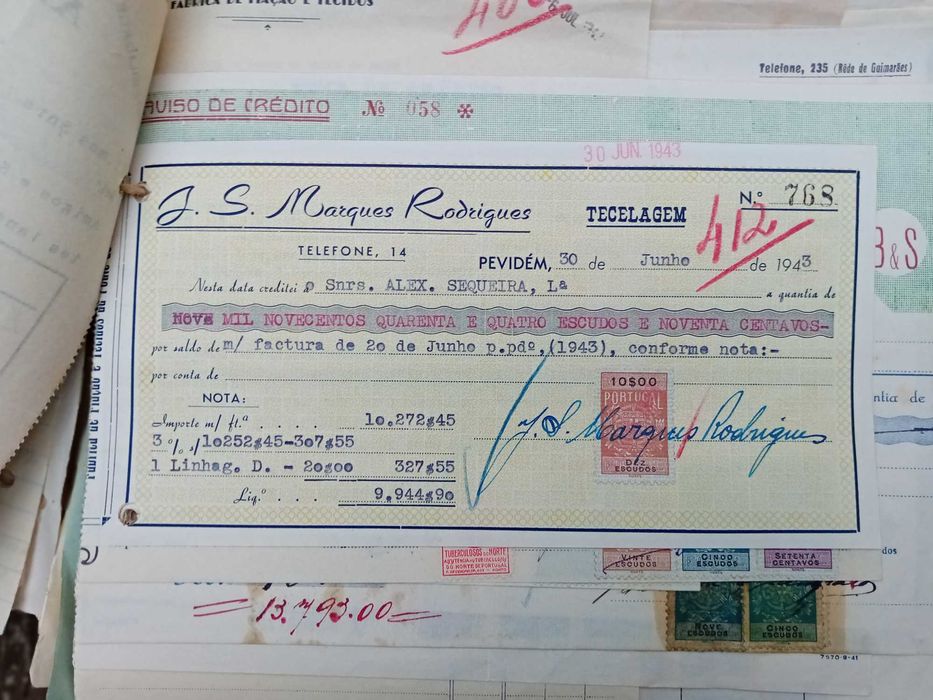 FÁBRICA DE FIAÇÃO E TECIDOS
6 JUL
Telefone, 235 (Rêde de Guimarães)
AVISO DE CRÉDITO Nº 058 *
30 JUN. 1943
J. S. Marques Rodrigues
TECELAGEM
N.º 768
412
TELEFONE, 14
PEVIDÉM, 30 de Junho de 1943
B & S
Nesta data creditei o Snrs. ALEX. SEQUEIRA, Lª a quantia de
NOVE MIL NOVECENTOS QUARENTA E QUATRO ESCUDOS E NOVENTA CENTAVOS-
por saldo de m/ factura de 20 de Junho p.pdº,(1943), conforme nota:-
por conta de
10$00
PORTUGAL
DEZ
ESCUDOS
NOTA:
Importe m/ ft.ª . . . . 10.272$45
3 %s/10252$45-307$55
1 Linhag. D. - 20$00 327$55
Liq.º . . . . 9.944$90
J. S. Marques Rodrigues
ntia de
TUBERCULOSOS DO NORTE
DO NORTE DE PORTUGAL
VINTE
ESCUDOS
CINCO
ESCUDOS
SETENTA
CENTAVOS
dos
13.793.00
NOVE
ESCUDOS
CINCO
ESCUDOS
7970-8-41